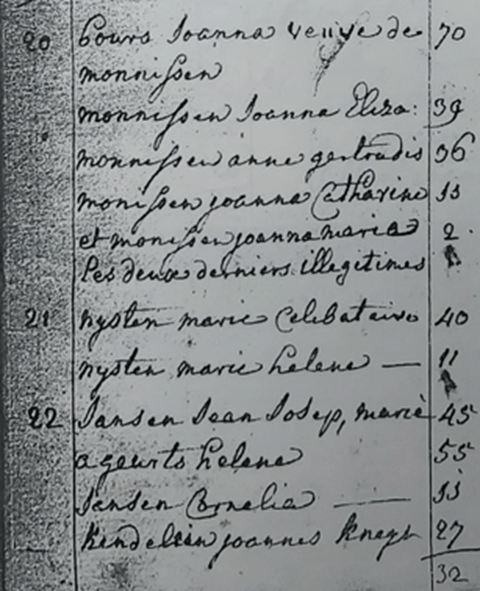 20 Cours Joanna veuve de 70
monnissen
monnissen Joanna Eliza: 39
monnissen anne gertrudis 36
monissen joanna Catharine 11
et monissen joanna maria 2.
les deux derniers illegitimes
21 nysten marie Celibataire 40
nysten marie helene — 11
22 Jansen Jean Josep, marié 45
a geurts helene 55
Jensen Cornelia — 11
joannes Knegt 27
32